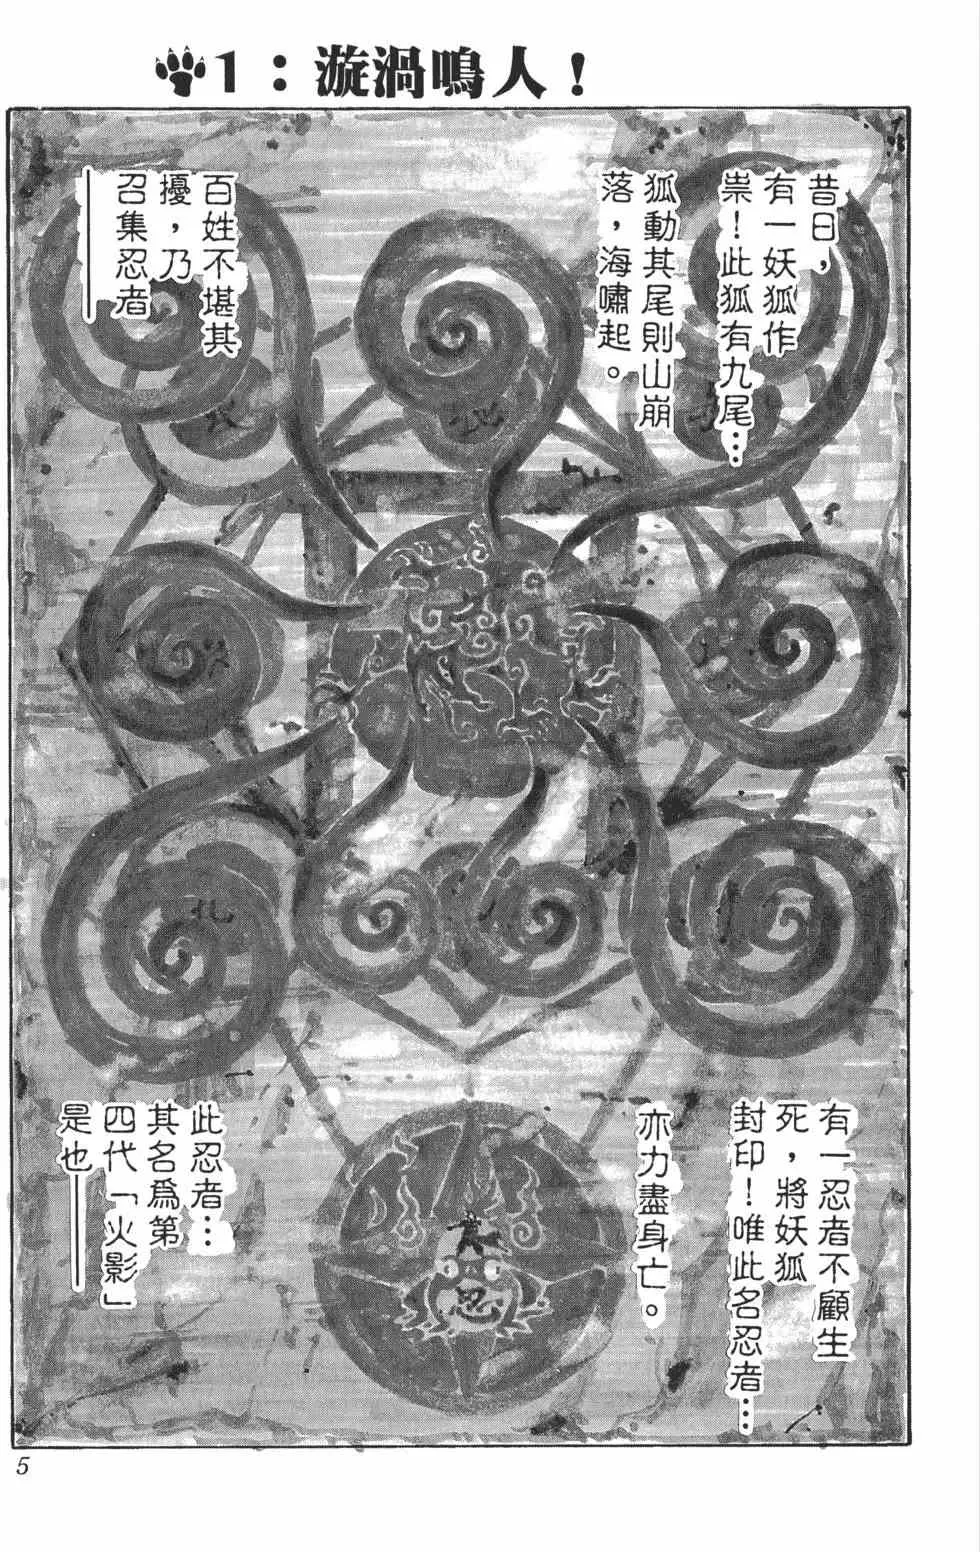 1：漩渦鳴人！
昔日，
有一妖狐作
祟！此狐有九尾…
狐動其尾則山崩
落，海嘯起。
百姓不堪其
擾，乃
召集忍者
有一忍者不顧生
死，將妖狐
封印！唯此名忍者…
亦力盡身亡。
此忍者…
其名爲第
四代「火影」
是也
忍
5